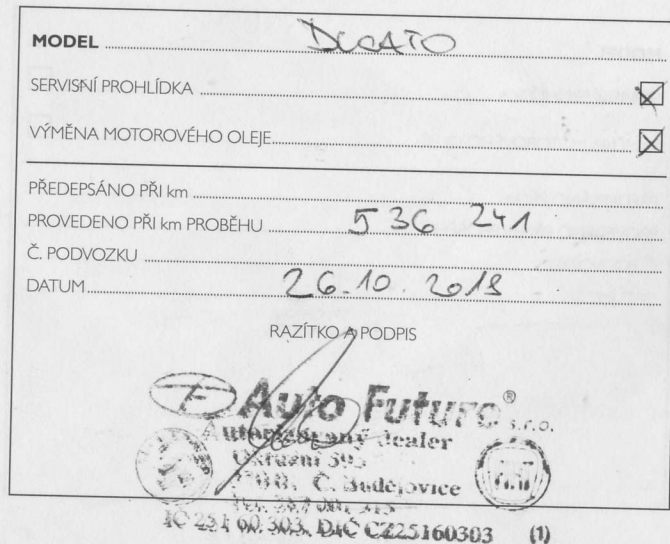 MODEL DUCATO
SERVISNÍ PROHLÍDKA
VÝMĚNA MOTOROVÉHO OLEJE
PŘEDEPSÁNO PŘI km
PROVEDENO PŘI km PROBĚHU 536 241
Č. PODVOZKU
DATUM 26.10.2018
RAZÍTKO A PODPIS
Auto Futuro® s.r.o.
Autorizovaný dealer
Okružní 595
Č. Budějovice
IČ 251 60 303, DIČ CZ25160303 (1)